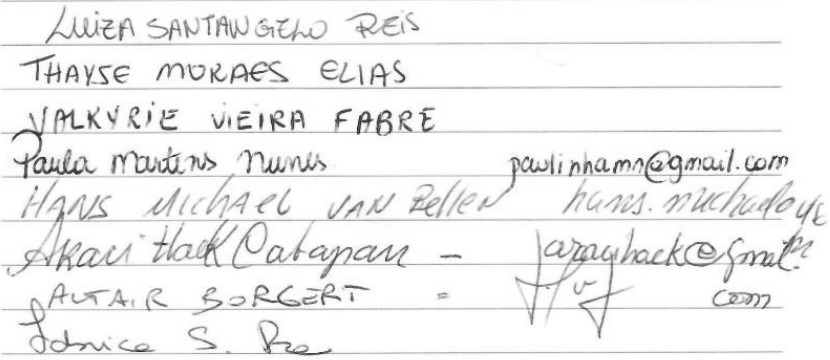 LUIZA SANTANGELO REIS
THAYSE MORAES ELIAS
VALKYRIE VIEIRA FABRE
Paula Martins Nunes paulinhamn@gmail.com
HANS MICHAEL VAN Bellen hans.michael@
Hack Catapan -
ALTAIR BORGERT = com
S.